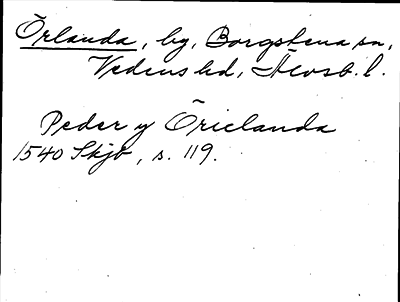 Ōrlanda, by, Borgstena sn,
Vedens hd, Älvsb. l.
Peder y Ōriclanda
1540 Skjb, s. 119.